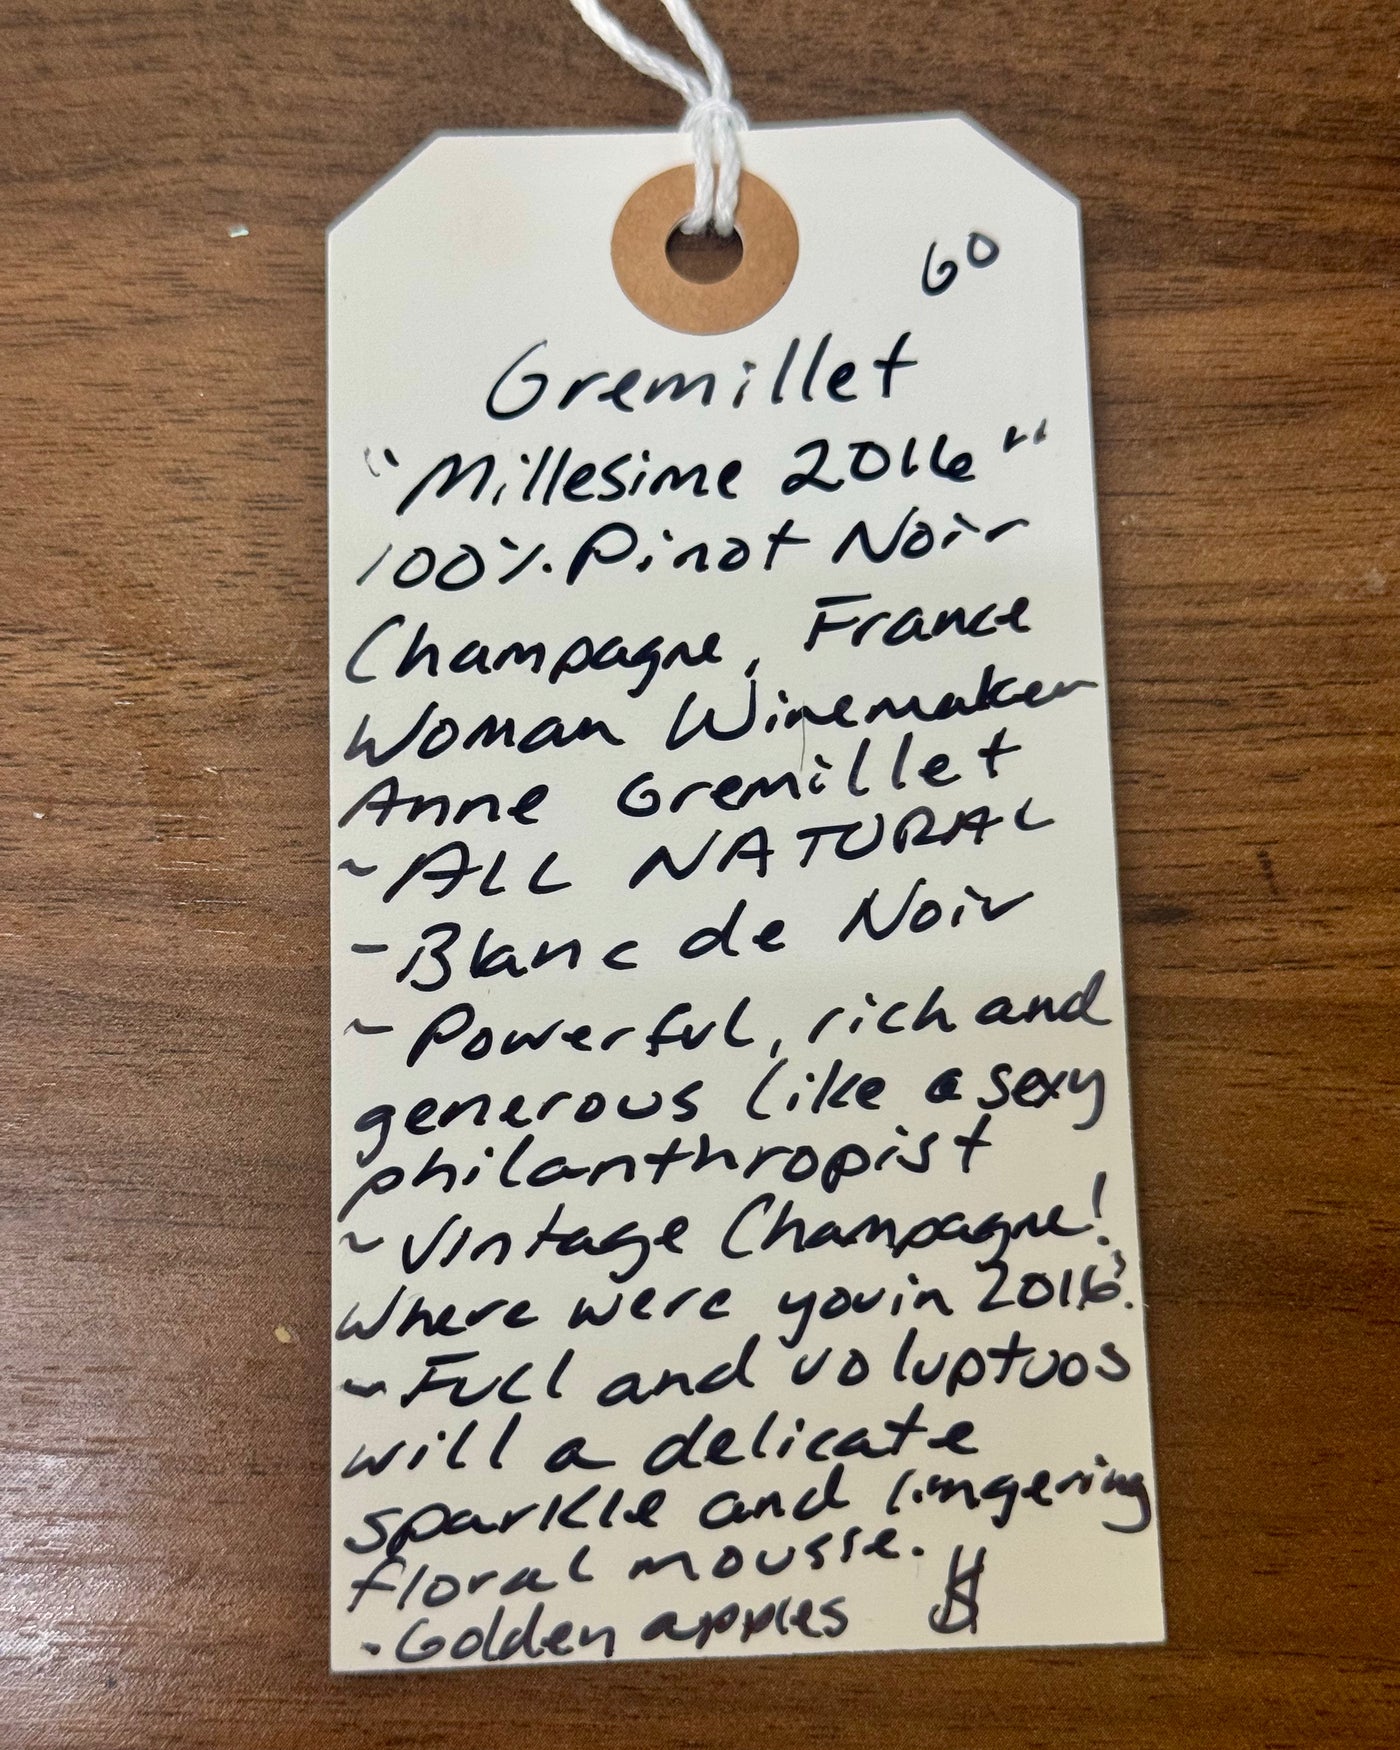 60
Gremillet
"Millesime 2016"
100% Pinot Noir
Champagne, France
Woman Winemaker
Anne Gremillet
~ALL NATURAL
-Blanc de Noir
~Powerful, rich and
generous like a sexy
philanthropist
~Vintage Champagne!
Where were you in 2016?
~Full and voluptuos
will a delicate
sparkle and lingering
floral mousse.
-Golden apples